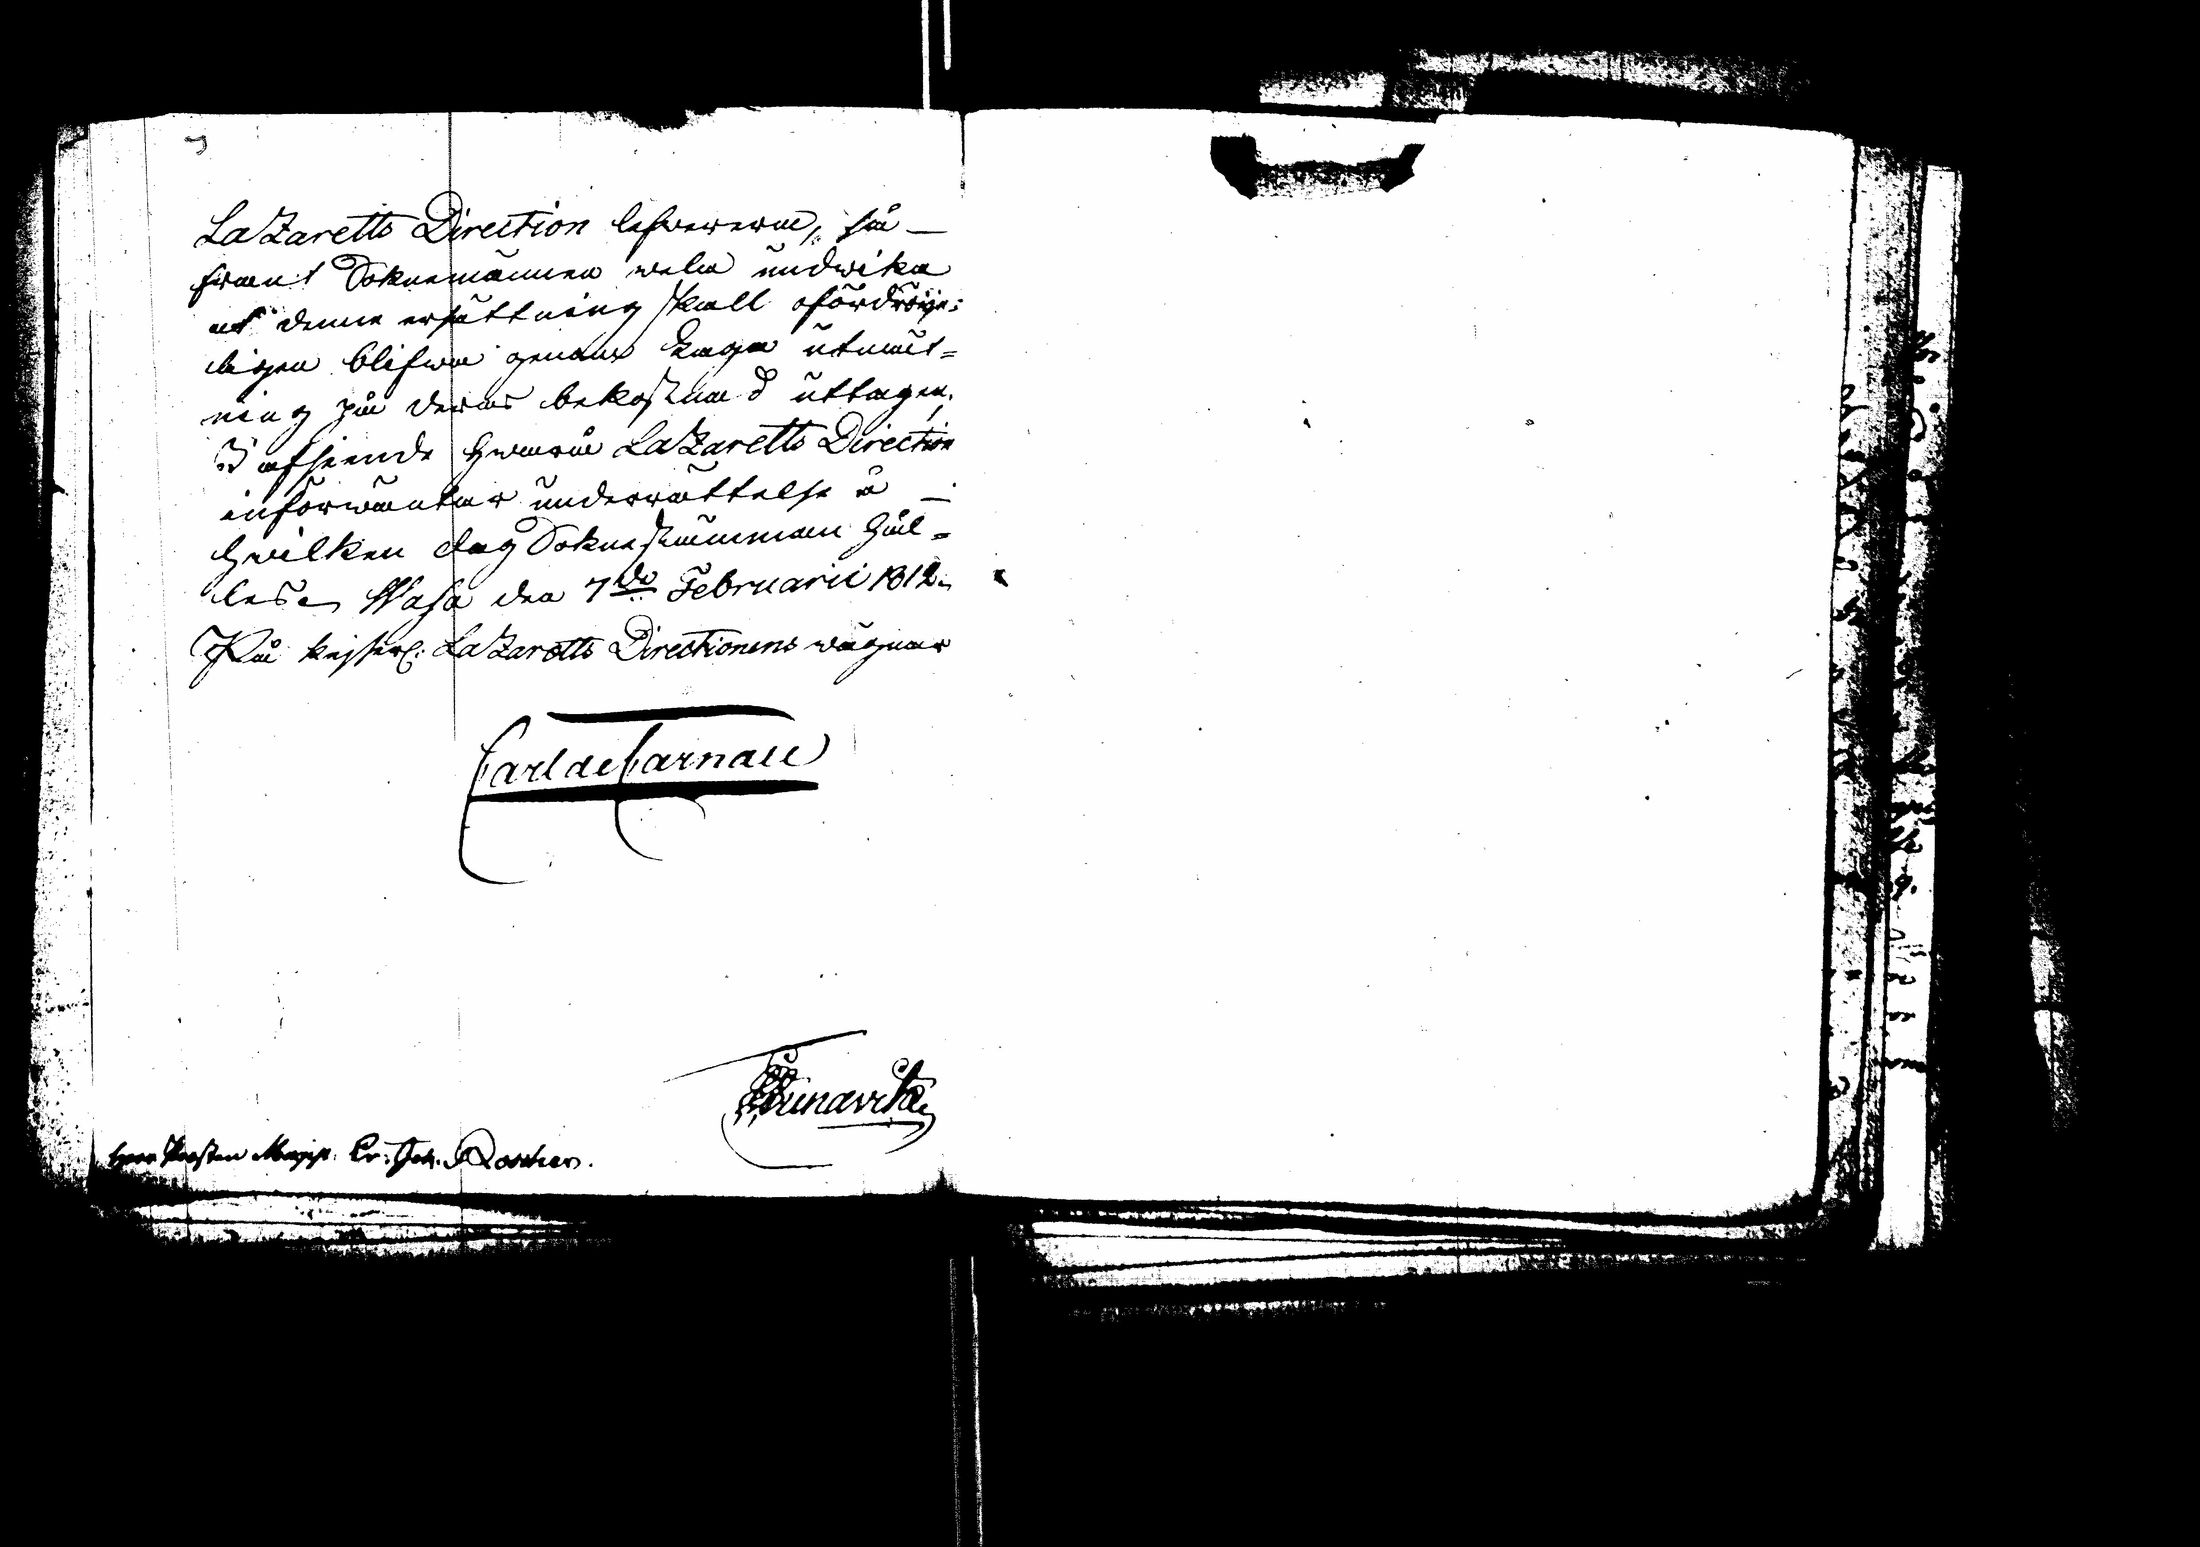 LaZaretts Direction lefwerera, så
framt Soknemännen welu undwika
at denne ersättning skall ofördröje:
ligen blifwa genom Laga utmät=
ning på deras bekostnad uttagen.
I afseende hwarå LaZaretts Direction
inforwäntar underrättelse å
hwilken dag Soknestämman hål=
les. Wasa den 7de Februarii 1812.
På Kejserl: LaZaretts Directionens wägnar
Carl de Carnall
Herr Prosten Magist: Er: